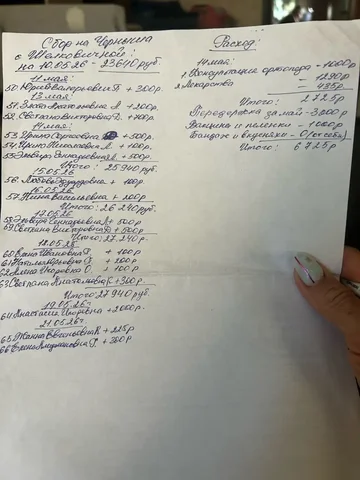 Сбор на Черныша
с Шелковичной:
на 10.05.26 - 23640 руб.
11 мая:
50. Юрий Валерьевич Т + 300р.
13 мая:
51. Элла Анатольевна А +200р.
52. Светлана Викторовна Д. +700р.
14 мая:
53. Ирина Сергеевна + 500р.
54. Ирина Николаевна А. + 100р.
55. Эльвира Геннадьевна А + 500р.
Итого: 25 940 руб.
15.05.26
56. Любовь Эдуардовна + 100р.
16.05.26
57. Нина Васильевна + 200р.
Итого: 26 240 руб.
17.05.26
58. Эльвира Геннадьевна А + 500р
59. Светлана Викторовна Д + 500р
Итого: 27 240р.
18.05.26
60. Елена Ивановна Г. + 100р
61. Наталья О. + 100р
62. Алина Игоровна О. + 100р
63. Светлана Анатольевна К + 300р.
Итого 27 940 руб.
19.05.26г.
64. Анастасия Игоревна + 2000р.
21.05.26г.
65. Жанна Евгеньевна К + 225р
66. Елена Г. + 300р
Расход:
14 мая:
1. Консультация ортопеда - 1000р
2. Лекарства - 1290р
- 435р.
Итого: 2725р
Передержка за май - 3000р
Вакцина и пеленки - 1000р
Бандаж и вкусняки - 0 (от себя)
Итого: 6725р.